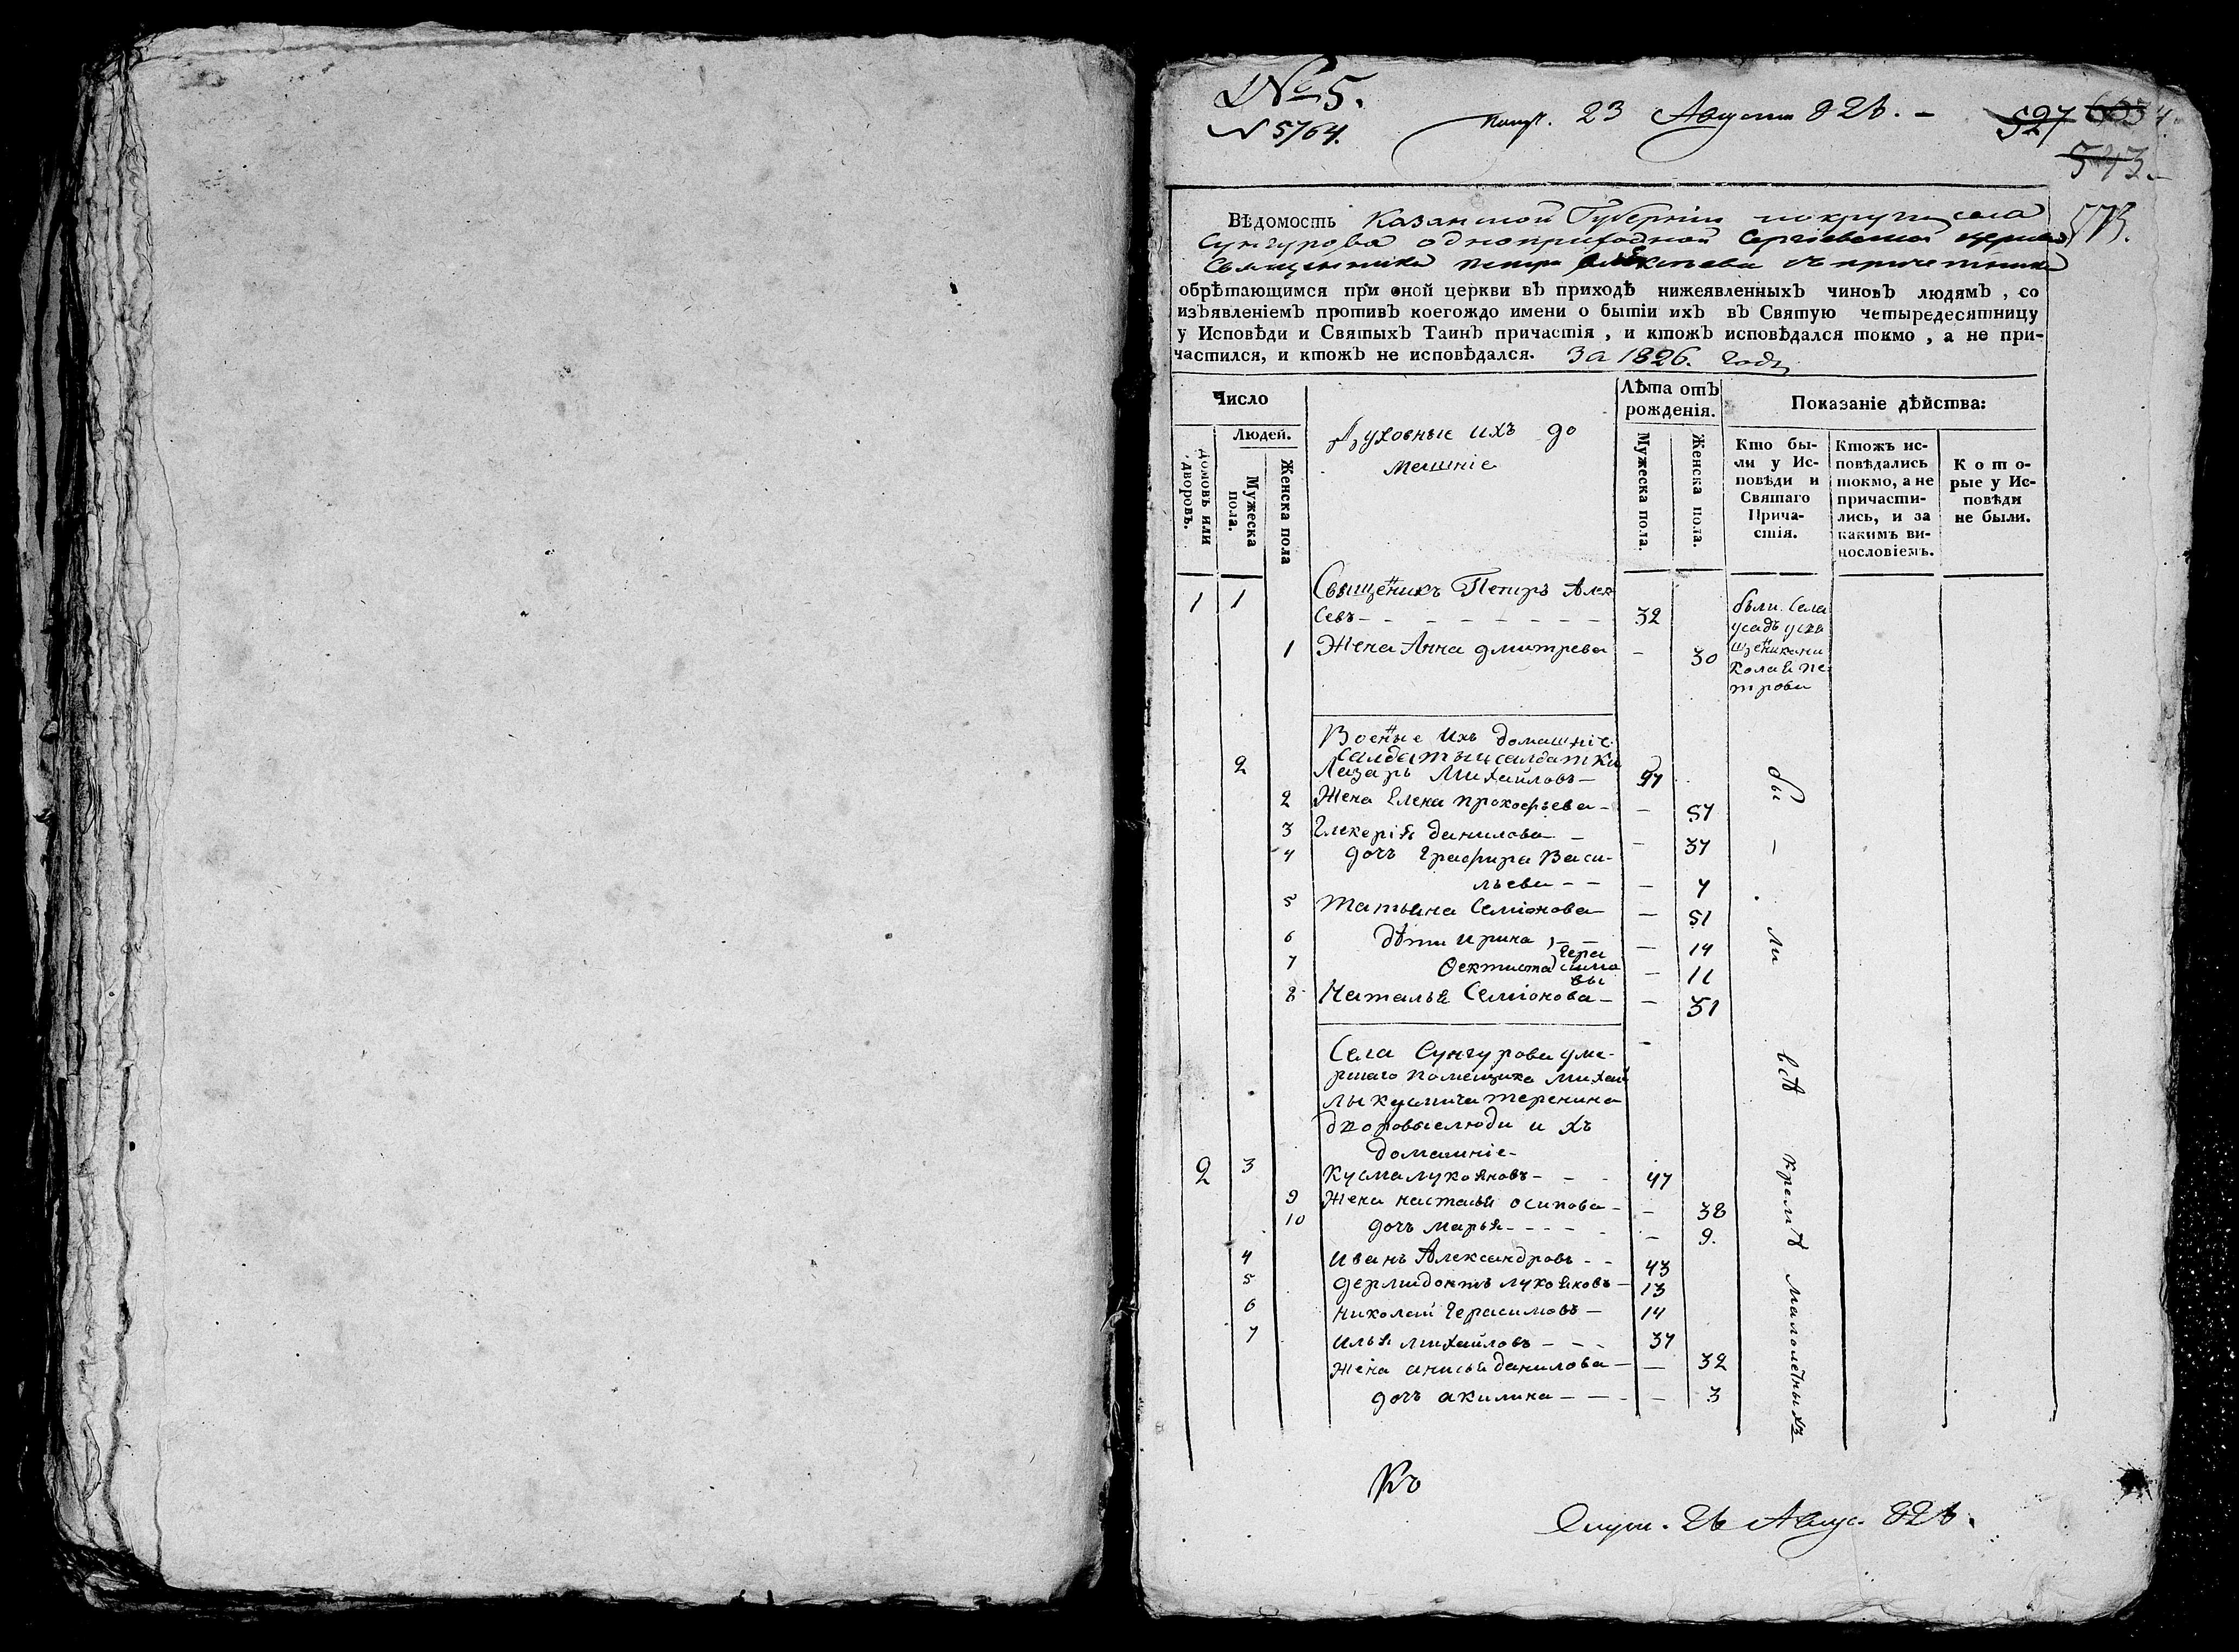 № 5.
N 5764.
23 Августа 826. –
527
543.
Вѣдомость Казанской Губерніи села
Сунгурова одноприходной Сергіевской церкви
Священника Петра Алексѣева съ причетники
обрѣтающимся при оной церкви въ приходѣ нижеявленныхъ чиновъ людямъ, со
изъявленіемъ противъ коегождо имени о бытіи ихъ въ Святую четыредесятницу
у Исповѣди и Святыхъ Таинъ причастія, и ктожъ исповѣдался токмо, а не при-
частился, и ктожъ не исповѣдался. За 1826. годъ
Число
Людей.
Домовъ или дворовъ.
Мужеска пола.
Женска пола
Духовные ихъ до
мешніе
Лѣта отъ
рожденія.
Мужеска пола.
Женска пола.
Показаніе дѣйства:
Кто бы-
ли у Ис-
повѣди и
Святаго
Прича-
стія.
Ктожъ ис-
повѣдались
токмо, а не
причасти-
лись, и за
какимъ ви-
нословіемъ.
Кото-
рые у Ис-
повѣди
не были.
1 1 Свящĕникъ Петръ Алек
севъ – – – – – – – 32
1 Жена Анна дмитрева – 30
были села
усадъ усвя
щĕникани
колая пе
трова
Воĕные ихъ домашніе
салдаты исалдатки
2 Лазарь Михайловъ –
2 Жена Елена прокофьева – – 57
3 Гликерія данилова – – 37
4 дочь Графира Васи-
льева – – – 4
5 Татьяна Семіонова – 51
6 дѣти ирина, – – 14
7 Фектиста Гера
симо
вы – 11
8 Наталья Семіонова – – 31
Села Сунгурова уме-
ршаго помещика михай
лы кусмича теренина
дворовыелюди и хъ
домашніе –
2 3 Кусмалукояновъ – – – 47
9 Жена настасья осипова – – 38
10 дочъ марья – – – – – 9.
4 иванъ Александровъ – – 43
5 дермидонтъ лукояновъ – 13
6 николай Герасимовъ – 14
7 илья михайловъ – – – 37
жена анисья данилова – – 32
дочъ акилина – – – – 3
бы – ли всѣ кромѣ малолетныхъ
Къ
26 Авгус. 826.